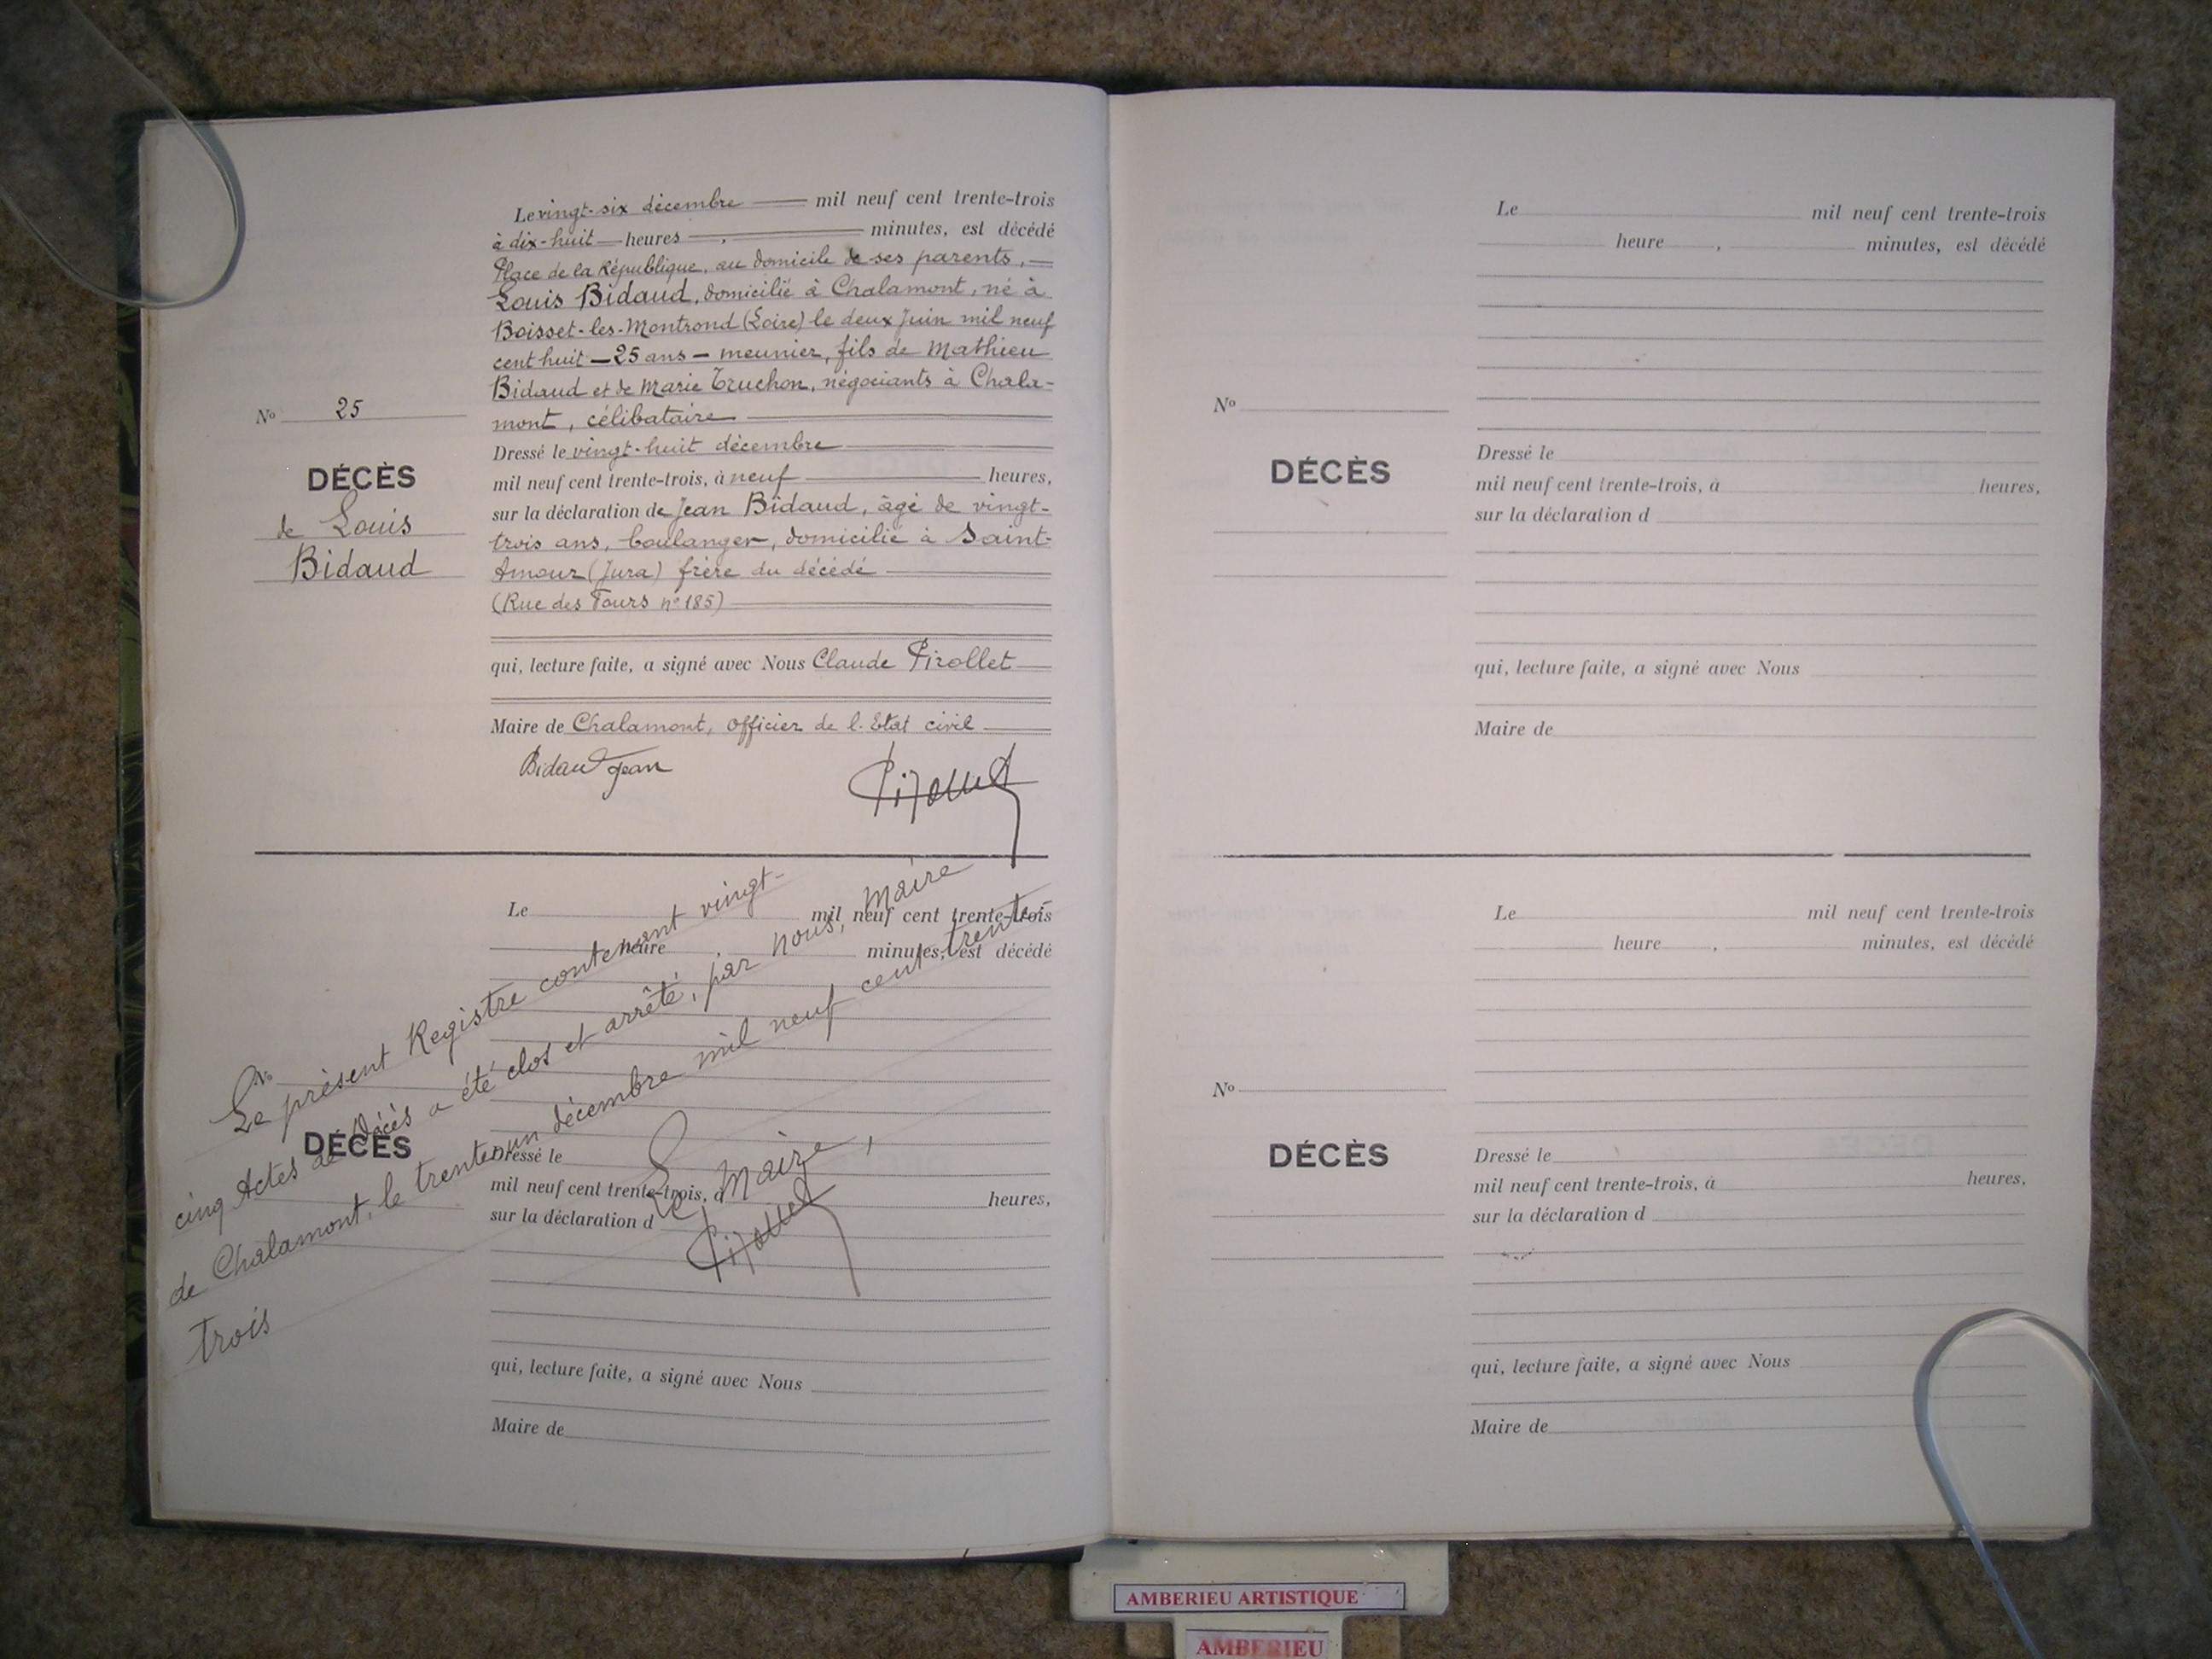 Le vingt-six décembre mil neuf cent trente-trois
à dix-huit heures , minutes, est décédé
Place de la République, au domicile de ses parents,
Louis Bidaud, domicilié à Chalamont, né à
Boisset-les-Montrond (Loire) le deux Juin mil neuf
cent huit - 25 ans - meunier, fils de Mathieu
Bidaud et de Marie Truchon, négociants à Chala-
mont, célibataire
Nº 25
DÉCÈS
de Louis
Bidaud
Dressé le vingt-huit décembre
mil neuf cent trente-trois, à neuf heures,
sur la déclaration de Jean Bidaud, âgé de vingt-
trois ans, boulanger, domicilié à Saint-
Amour (Jura) frère du décédé
(Rue des Tours nº 185)
qui, lecture faite, a signé avec Nous Claude Pirollet
Maire de Chalamont, officier de l'Etat civil
Bidaud Jean
Pirollet
Le mil neuf cent trente-trois
heure , minutes, est décédé
Nº
DÉCÈS
Dressé le
mil neuf cent trente-trois, à heures,
sur la déclaration d
qui, lecture faite, a signé avec Nous
Maire de
Le présent Registre contenant vingt-
cinq Actes de Décès a été clos et arrêté, par nous, Maire
de Chalamont, le trente-un décembre mil neuf cent trente-
trois
Le Maire,
Pirollet
Le mil neuf cent trente-trois
heure , minutes, est décédé
Nº
DÉCÈS
Dressé le
mil neuf cent trente-trois, à heures,
sur la déclaration d
qui, lecture faite, a signé avec Nous
Maire de
Le mil neuf cent trente-trois
heure , minutes, est décédé
Nº
DÉCÈS
Dressé le
mil neuf cent trente-trois, à heures,
sur la déclaration d
qui, lecture faite, a signé avec Nous
Maire de
AMBERIEU ARTISTIQUE
AMBERIEU